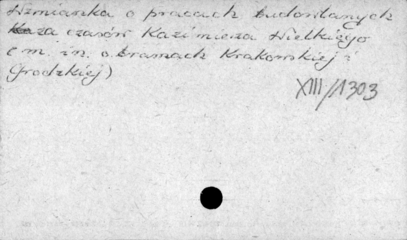 Wzmianka o pracach budowlanych
za czasów Kazimierza Wielkiego
(m. in. o bramach Krakowskiej i
Grodzkiej)
XIII/1303